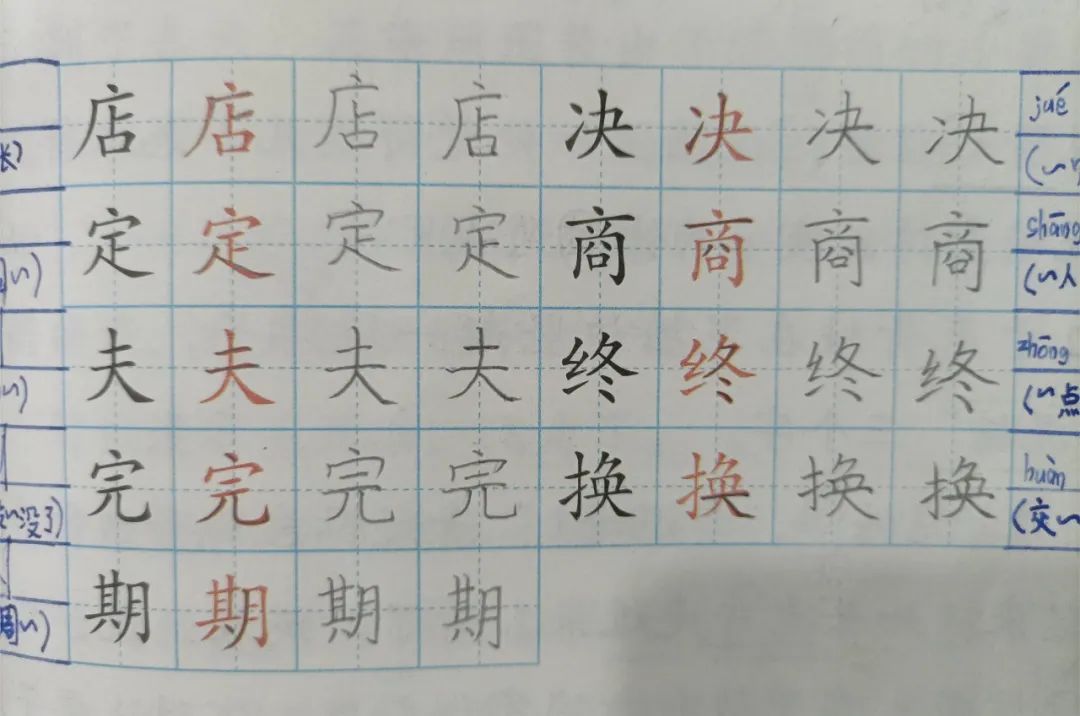 店 店 店 店 决 决 决 决 jué
定 定 定 定 商 商 商 商 shāng
(～人
夫 夫 夫 夫 终 终 终 终 zhōng
(～点
完 完 完 完 换 换 换 换 huàn
没了) (交～
期 期 期 期